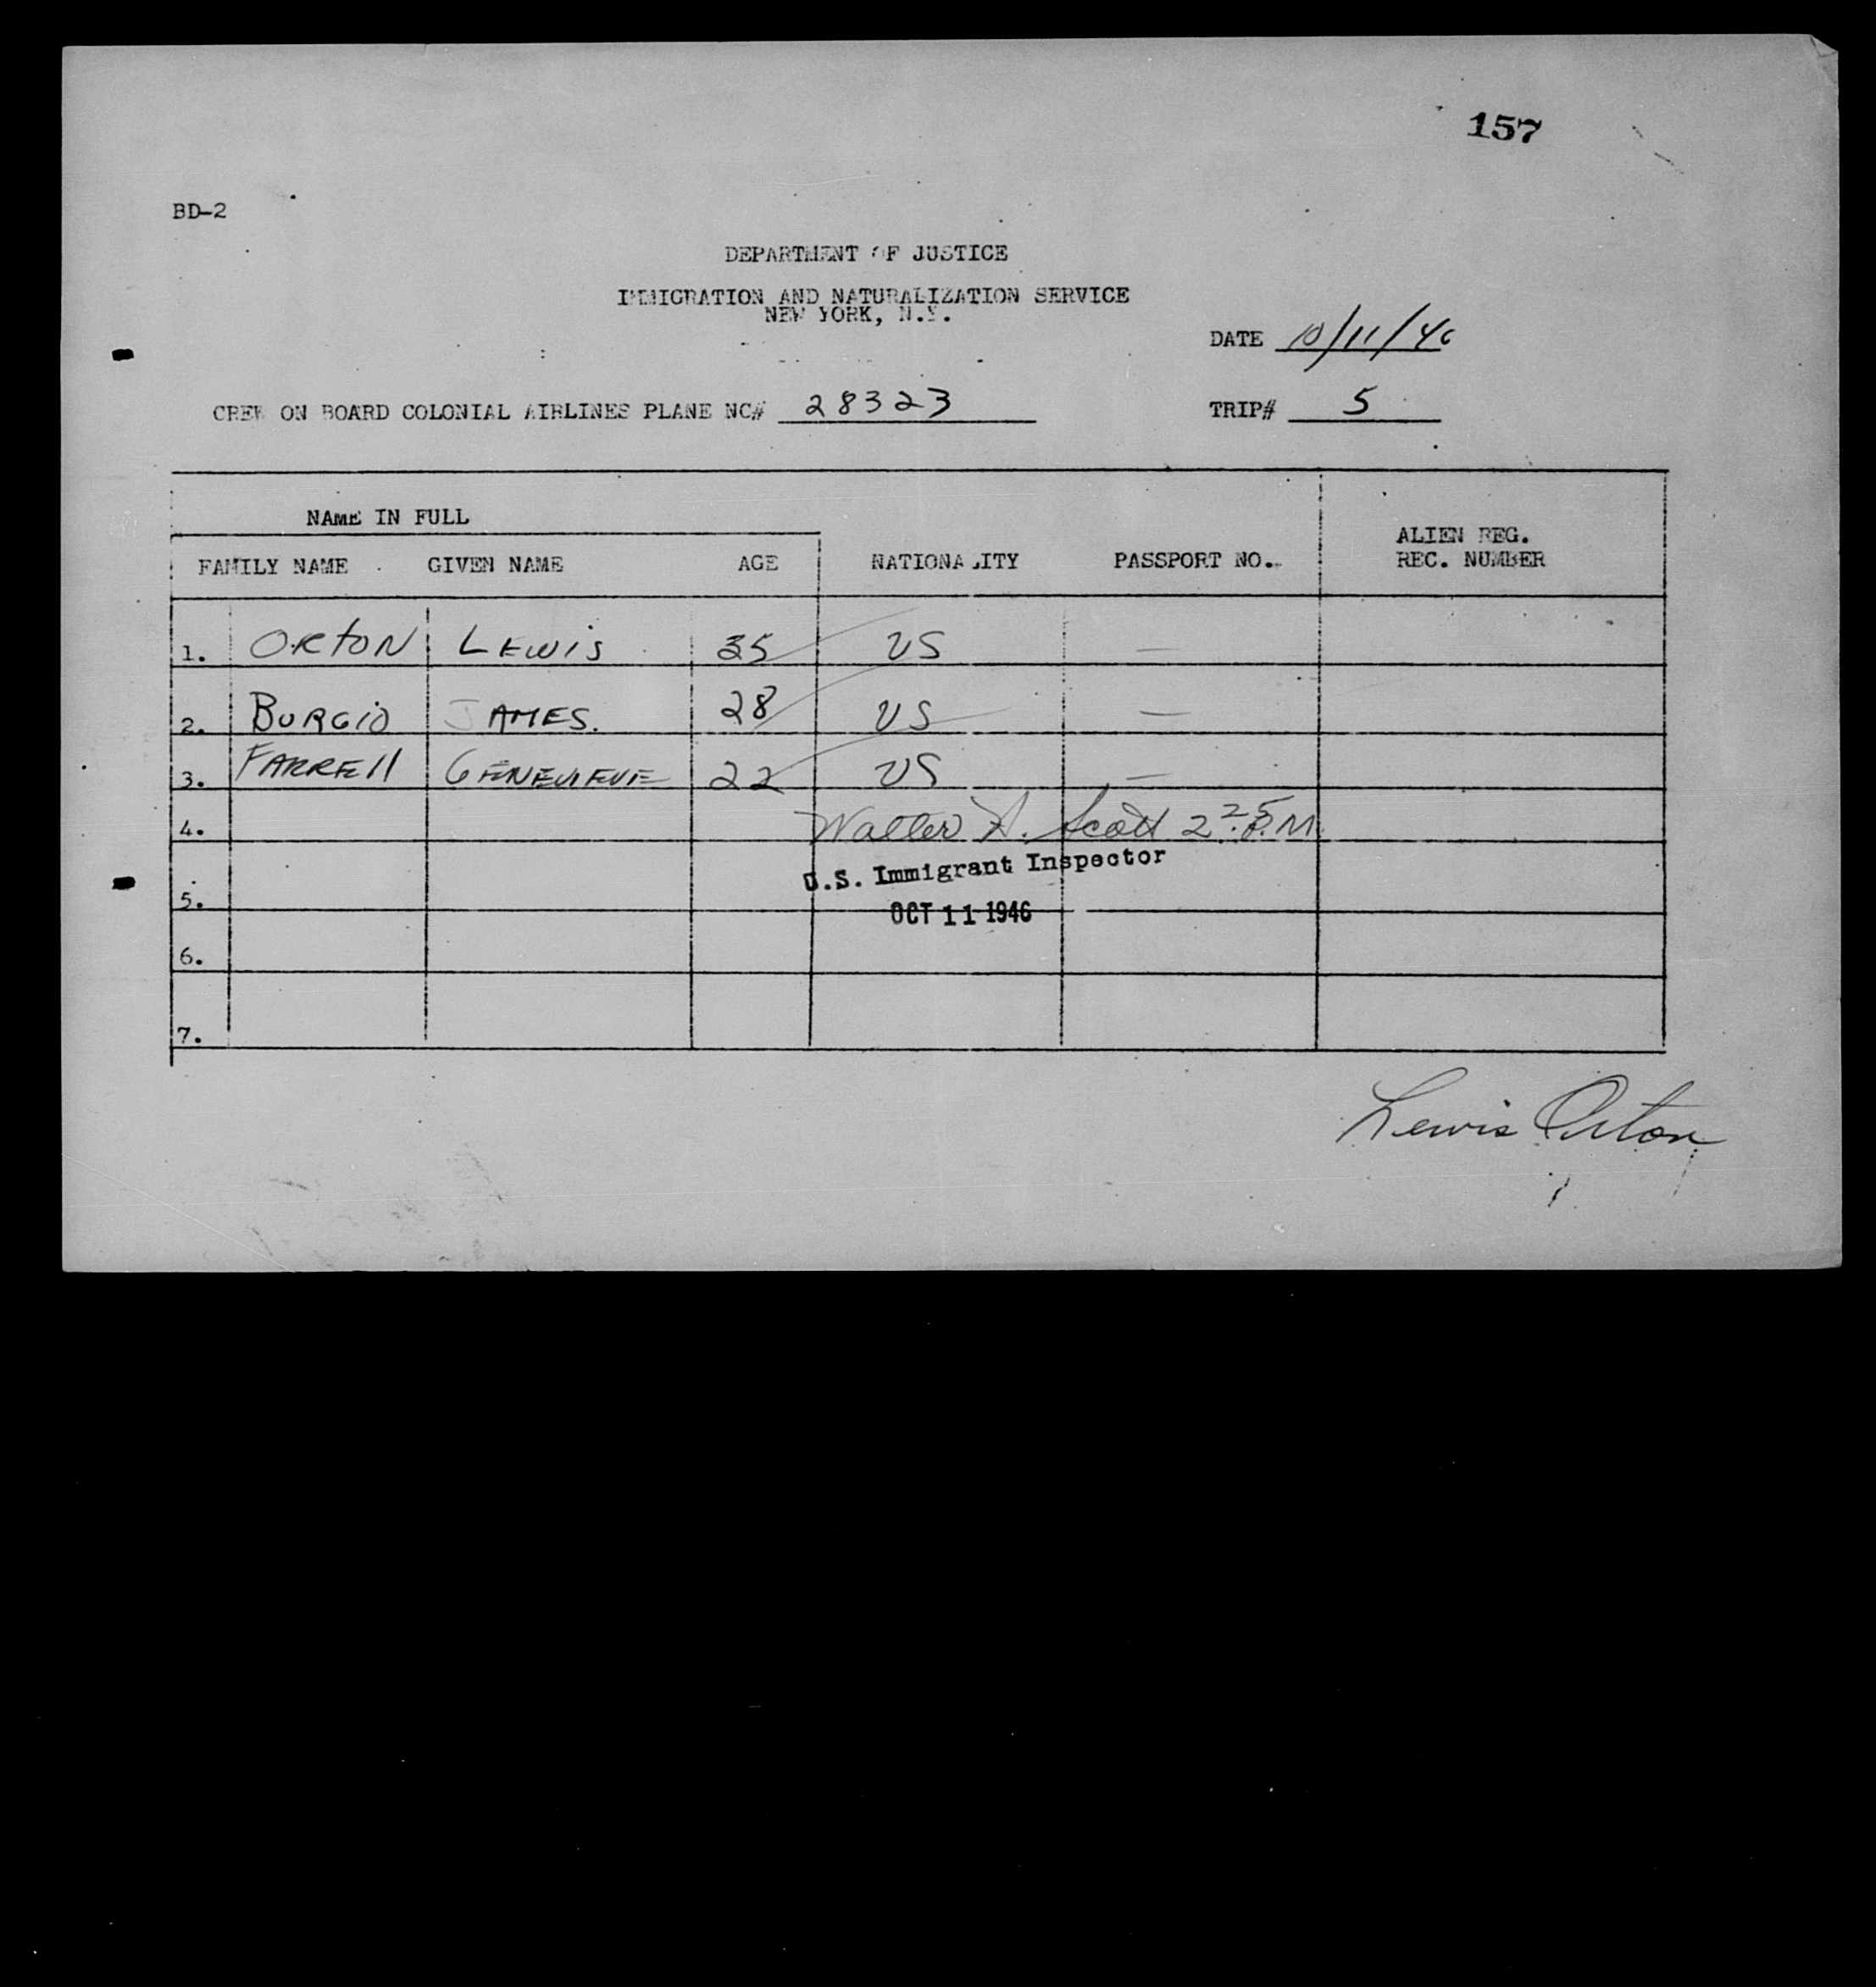 157
BD-2
DEPARTMENT OF JUSTICE
IMMIGRATION AND NATURALIZATION SERVICE
NEW YORK, N.Y.
DATE 10/11/46
CREW ON BOARD COLONIAL AIRLINES PLANE NC# 28323 TRIP# 5
NAME IN FULL
FAMILY NAME GIVEN NAME AGE NATIONALITY PASSPORT NO. ALIEN REG. REC. NUMBER
1. ORTON LEWIS 35 US —
2. BURGIO JAMES. 28 US —
3. FARRELL GENEVIEVE 22 US —
4. Walter A. Scott 2 25 P.M.
U.S. Immigrant Inspector
5. OCT 11 1946
6.
7.
Lewis Orton